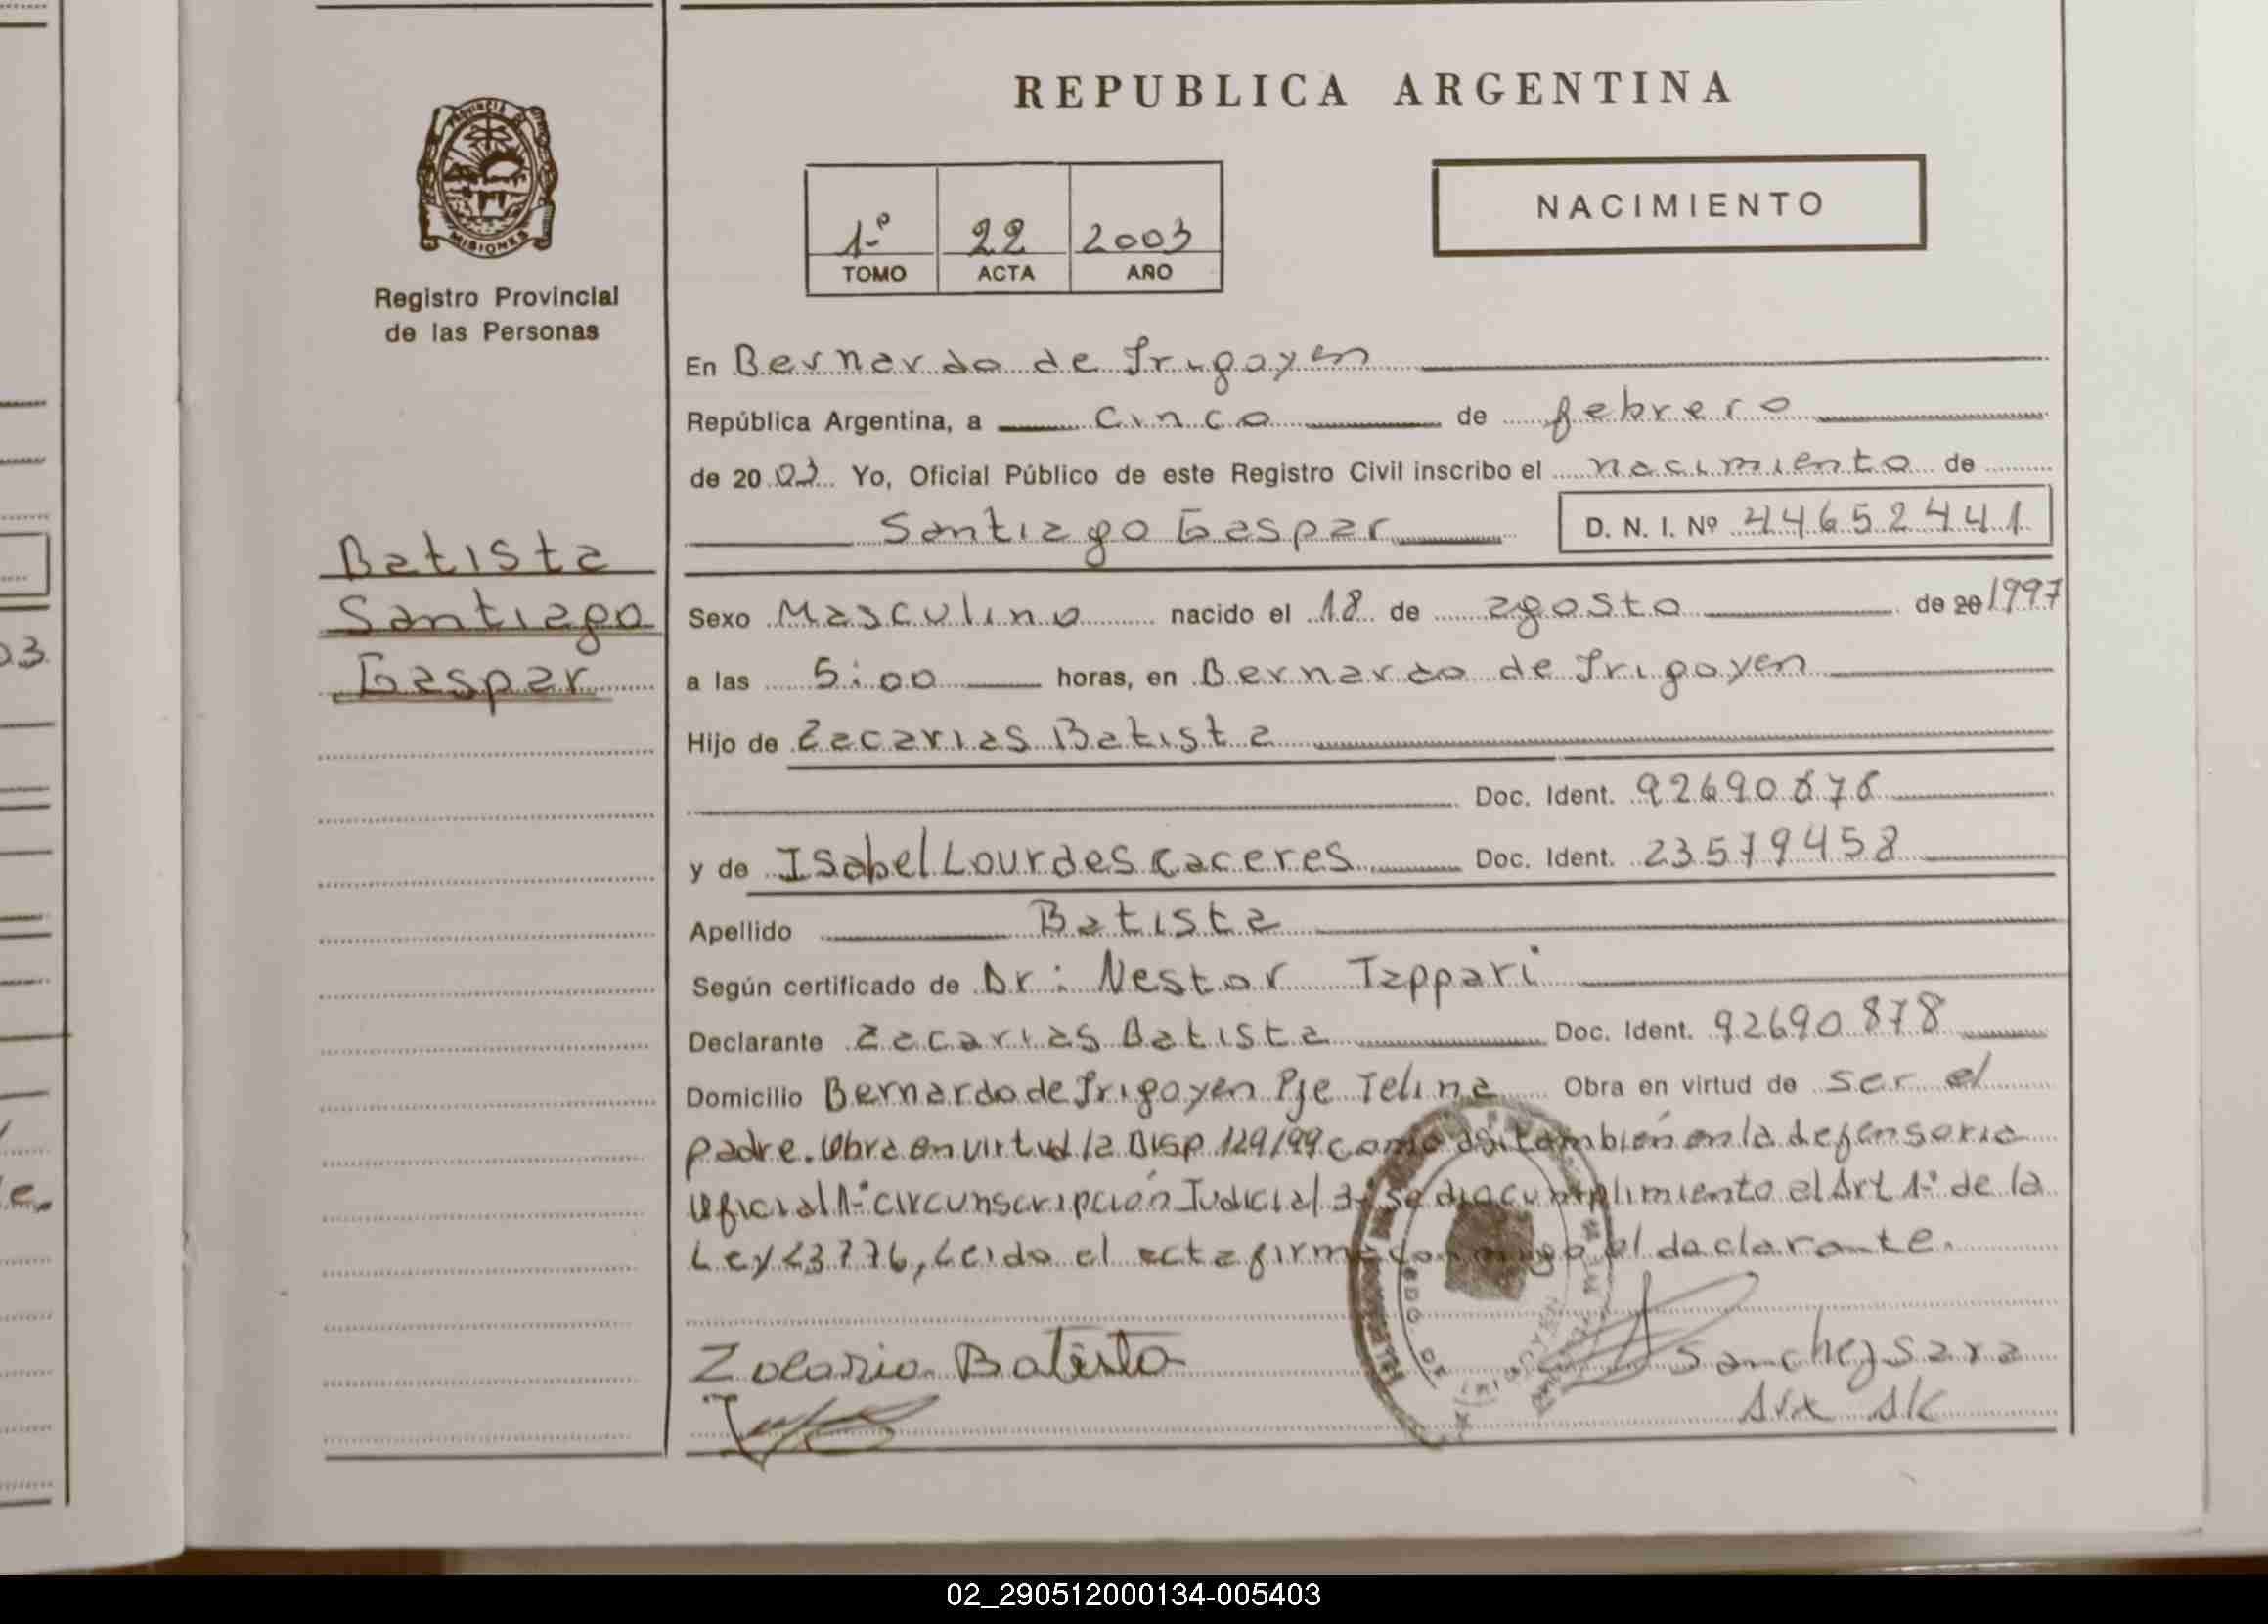 REPUBLICA ARGENTINA
PROVINCIA DE MISIONES
Registro Provincial
de las Personas
1º 22 2003
TOMO ACTA AÑO
NACIMIENTO
En Bernardo de Irigoyen
República Argentina, a cinco de febrero
de 20 03 Yo, Oficial Público de este Registro Civil inscribo el nacimiento de
Santiago Gaspar D. N. I. Nº 44652441
Batista
Santiago
Gaspar
Sexo Masculino nacido el 18 de agosto de 20 1997
a las 5:00 horas, en Bernardo de Irigoyen
Hijo de Zacarias Batista
Doc. Ident. 92690878
y de Isabel Lourdes Caceres Doc. Ident. 23579458
Apellido Batista
Según certificado de Dr: Nestor Tappari
Declarante Zacarias Batista Doc. Ident. 92690878
Domicilio Bernardo de Irigoyen Pje Telina Obra en virtud de ser el
padre. Obra en virtud la Disp 129/99 como asi tambien en la defensoria
Oficial 1º circunscripción Judicial 3º se dio cumplimiento el Art 1º de la
Ley 23776, Leido el acta firma conmigo el declarante.
Zacaria Batista
Sanchez Sara
03
02_290512000134-005403